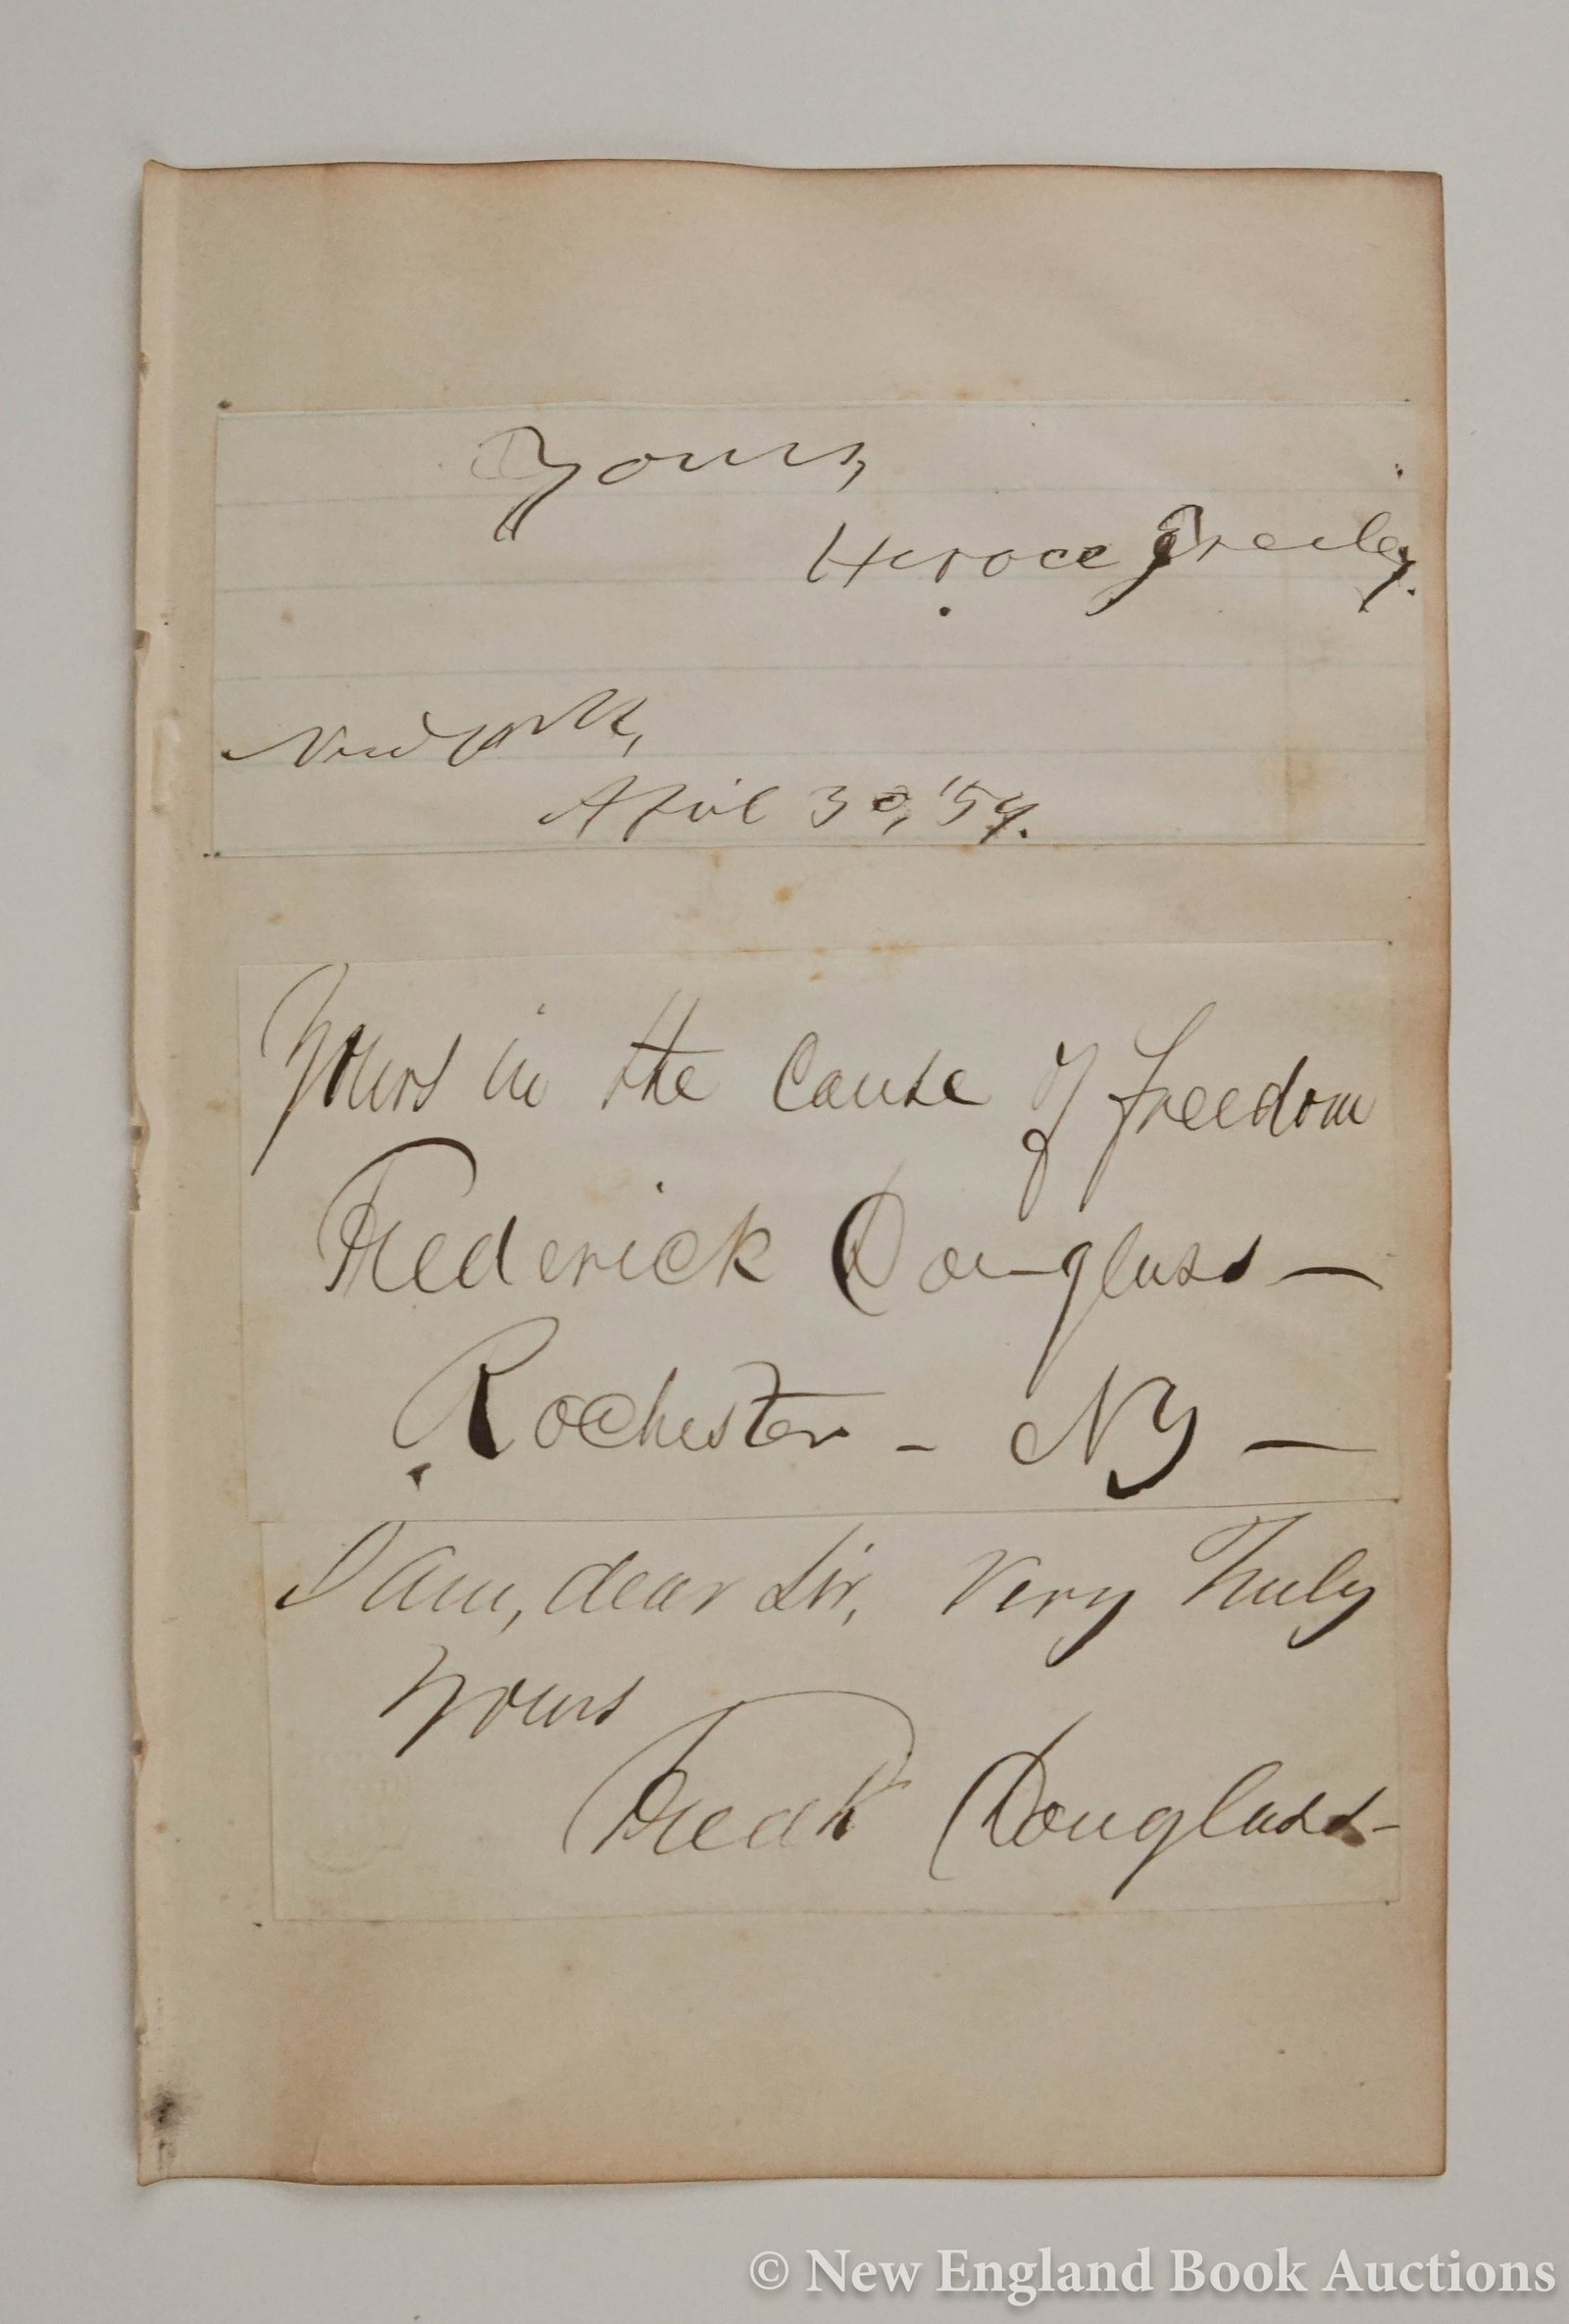 Yours,
Horace Greeley.
New York,
April 30, '54.
Yours in the Cause of freedom
Frederick Douglass —
Rochester - NY —
I am, dear Sir, Very Truly
Yours
Fredk Douglass-
© New England Book Auctions